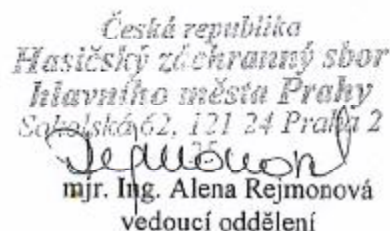 Česká republika
Hasičský záchranný sbor
hlavního města Prahy
Sokolská 62, 121 24 Praha 2
mjr. Ing. Alena Rejmonová
vedoucí oddělení